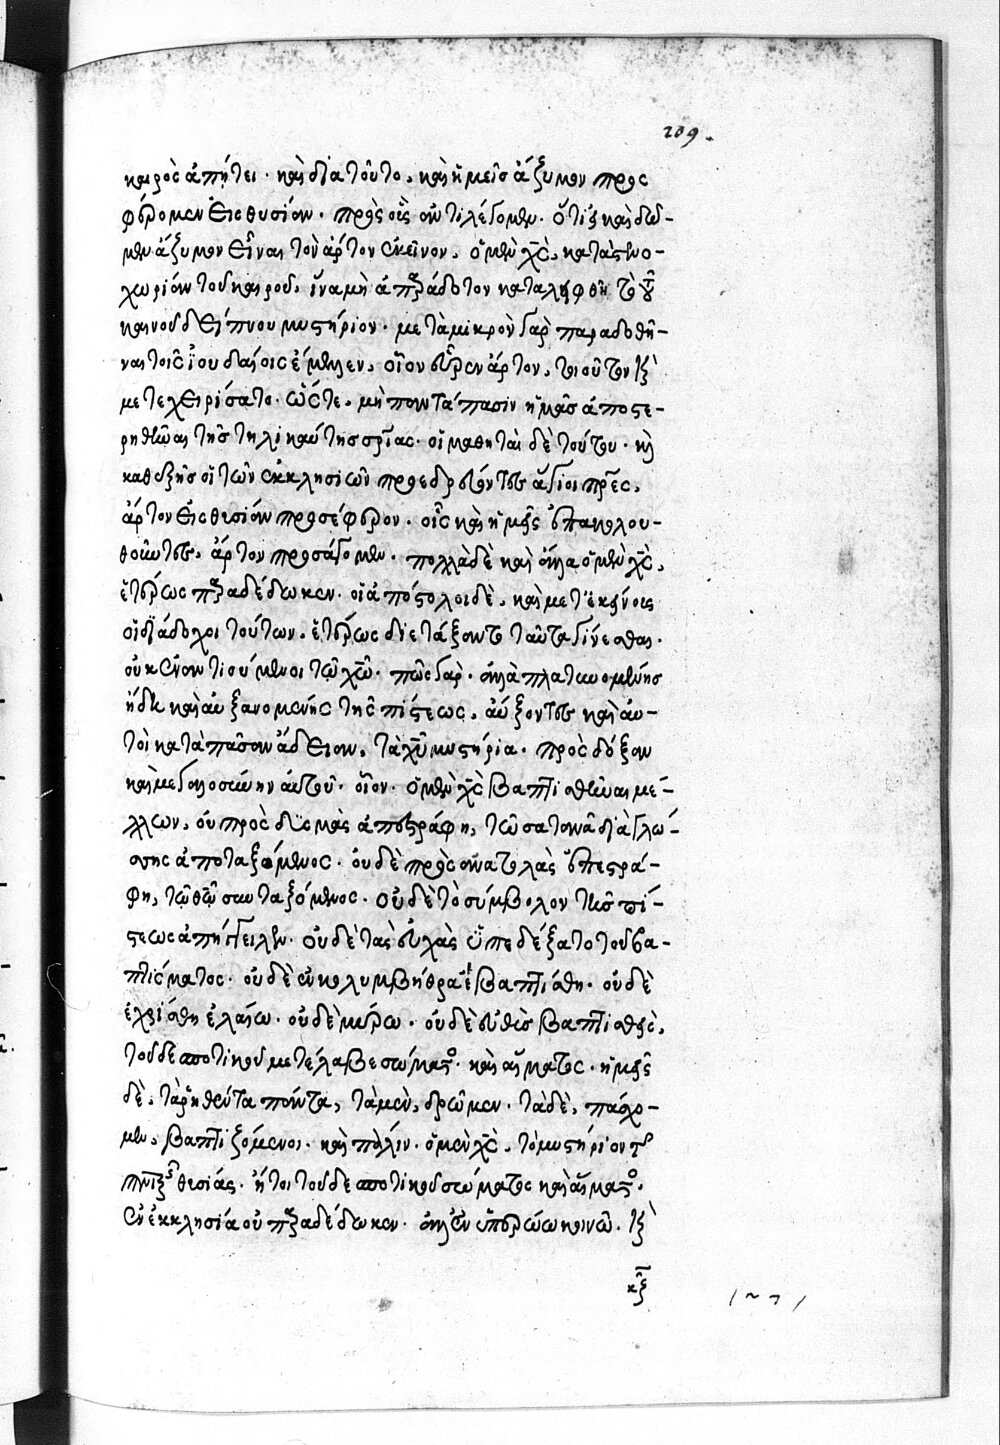 209.
καιρὸς ἀπῄτει· καὶ διὰ τοῦτο, καὶ ἡμεῖς ἄζυμον προσ
φέρομεν εἰς θυσίαν· πρὸς οὓς ἀντιλέγομεν· ὅτι εἰ καὶ δῶ-
μεν ἄζυμον εἶναι τὸν ἄρτον ἐκεῖνον, ὁ μὲν χς, κατὰ στενο-
χωρίαν τοῦ καιροῦ, ἵνα μὴ ἀπαράδοτον καταλειφθῇ τὸ τοῦ
καινοῦ δείπνου μυστήριον· μετὰ μικρὸν γὰρ παραδοθῆ-
ναι τοῖς ἰουδαίοις ἔμελλεν, οἷον εὗρεν ἄρτον, τοιοῦτον καὶ
μετεχειρίσατο· ὥστε, μὴ παντάπασιν ἡμᾶς ἀποστε-
ρηθῆναι τῆς τηλικαύτης σρίας· οἱ μαθηταὶ δὲ τούτου· καὶ
καθεξῆς οἱ τῶν ἐκκλησιῶν προεδρεύοντες ἅγιοι πρες,
ἄρτον εἰς θυσίαν προσέφερον· οἷς καὶ ἡμεῖς ἐπακολου-
θοῦντες, ἄρτον προσάγομεν· πολλὰ δὲ καὶ ἄλλα ὁ μὲν χς,
ἑτέρως παραδέδωκεν· οἱ ἀπόστολοι δὲ, καὶ μετ' ἐκείνοις
οἱ διάδοχοι τούτων, ἑτέρως διετάξαντο ταῦτα γίνεσθαι·
οὐκ ἐναντιούμενοι τῷ χῷ· πῶς γάρ· ἀλλὰ πλατυνομένης
ἤδη καὶ αὐξανομένης τῆς πίστεως, αὔξοντες καὶ αὐ-
τοὶ κατὰ πᾶσαν ἄδειαν, τὰ χυ μυστήρια· πρὸς δόξαν
καὶ μεγαλοσύνην αὐτοῦ· οἷον· ὁ μὲν χς βαπτισθῆναι μέ-
λλων, οὐ πρὸς δυσμὰς ἀπεστράφη, τῷ σατανᾷ διὰ γλώ-
σσης ἀποταξάμενος· οὐδὲ πρὸς ἀνατολὰς ἐπεστρά-
φη, τῷ θῷ συνταξάμενος· οὐδὲ τὸ σύμβολον τῆς πί-
στεως ἀπήγγειλεν· οὐδὲ τὰς εὐχὰς ὑπεδέξατο τοῦ βα-
πτίσματος· οὐδὲ ἐν κολυμβήθρᾳ ἐβαπτίσθη· οὐδὲ
ἐχρίσθη ἐλαίῳ· οὐδὲ μύρῳ· οὐδὲ εὐθὺς βαπτισθεὶς,
τοῦ δεσποτικοῦ μετέλαβε σώματος· καὶ αἵματος· ἡμεῖς
δὲ, τὰ ῥηθέντα πάντα, τὰ μὲν, δρῶμεν· τὰ δὲ, πάσχο-
μεν, βαπτιζόμενοι· καὶ πάλιν· ὁ μὲν χς, τὸ μυστήριον τῆς
θυσίας· ἤτοι τοῦ δεσποτικοῦ σώματος καὶ αἵματος·
ἐν ἐκκλησίᾳ οὐ παραδέδωκεν· ἀλλ' ἐν ὑπερῴῳ κοινῷ· καὶ